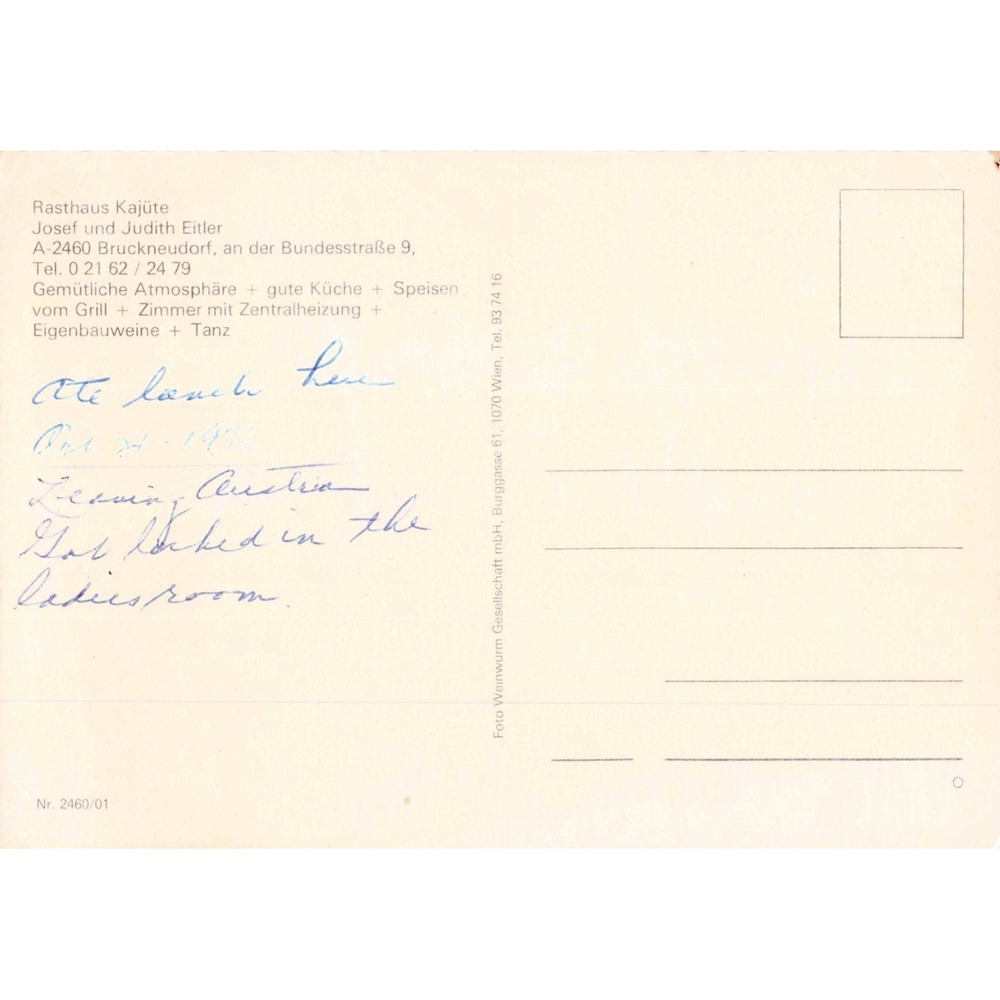 Rasthaus Kajüte
Josef und Judith Eitler
A-2460 Bruckneudorf, an der Bundesstraße 9,
Tel. 0 21 62 / 24 79
Gemütliche Atmosphäre + gute Küche + Speisen
vom Grill + Zimmer mit Zentralheizung +
Eigenbauweine + Tanz
Ate lunch here
Leaving Austria
Got locked in the
ladies room.
Foto Weinwurm Gesellschaft mbH, Burggasse 61, 1070 Wien, Tel. 93 74 16
Nr. 2460/01